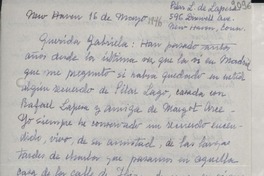 Pilar L. de Lapesa
596 Dowell Ave.
New Haven, Conn.
New Haven 16 de Mayo 1946
Querida Gabriela: Han pasado tantos
años desde la última vez que la vi en Madrid
que me pregunto si habrá quedado en usted
algún recuerdo de Pilar Lago, casada con
Rafael Lapesa y amiga de Margot Arce.
Yo siempre he conservado un recuerdo encen-
dido, vivo, de su amistad, de las largas
tardes de charla que pasamos en aquella
casa de la calle de